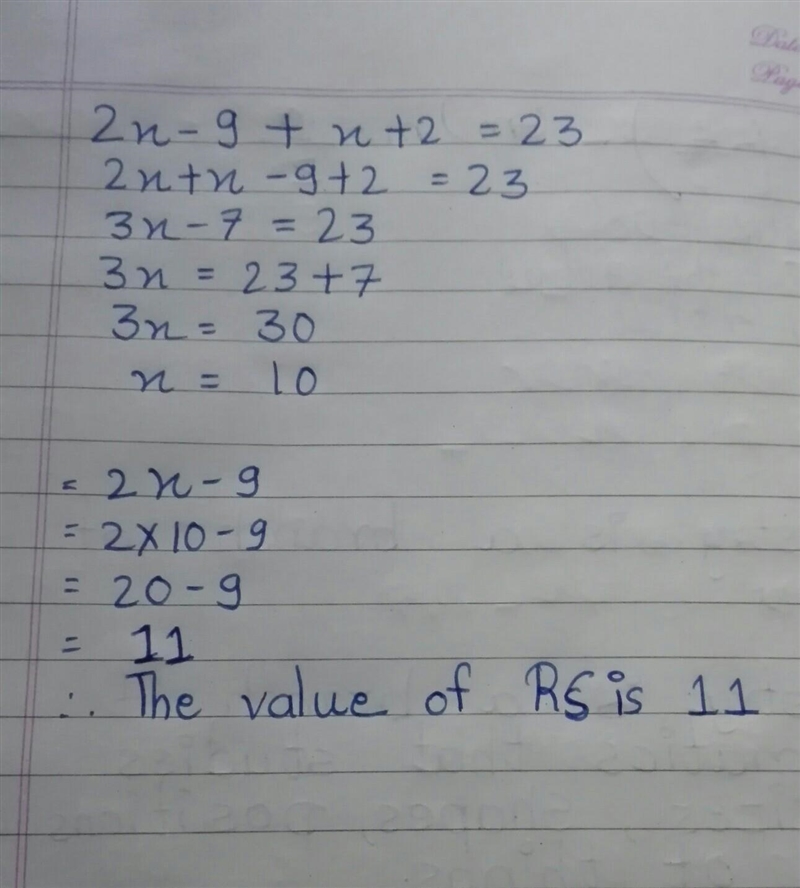 Date
Page
2x - 9 + x + 2 = 23
2x + x - 9 + 2 = 23
3x - 7 = 23
3x = 23 + 7
3x = 30
x = 10
= 2x - 9
= 2 × 10 - 9
= 20 - 9
= 11
∴ The value of RS is 11